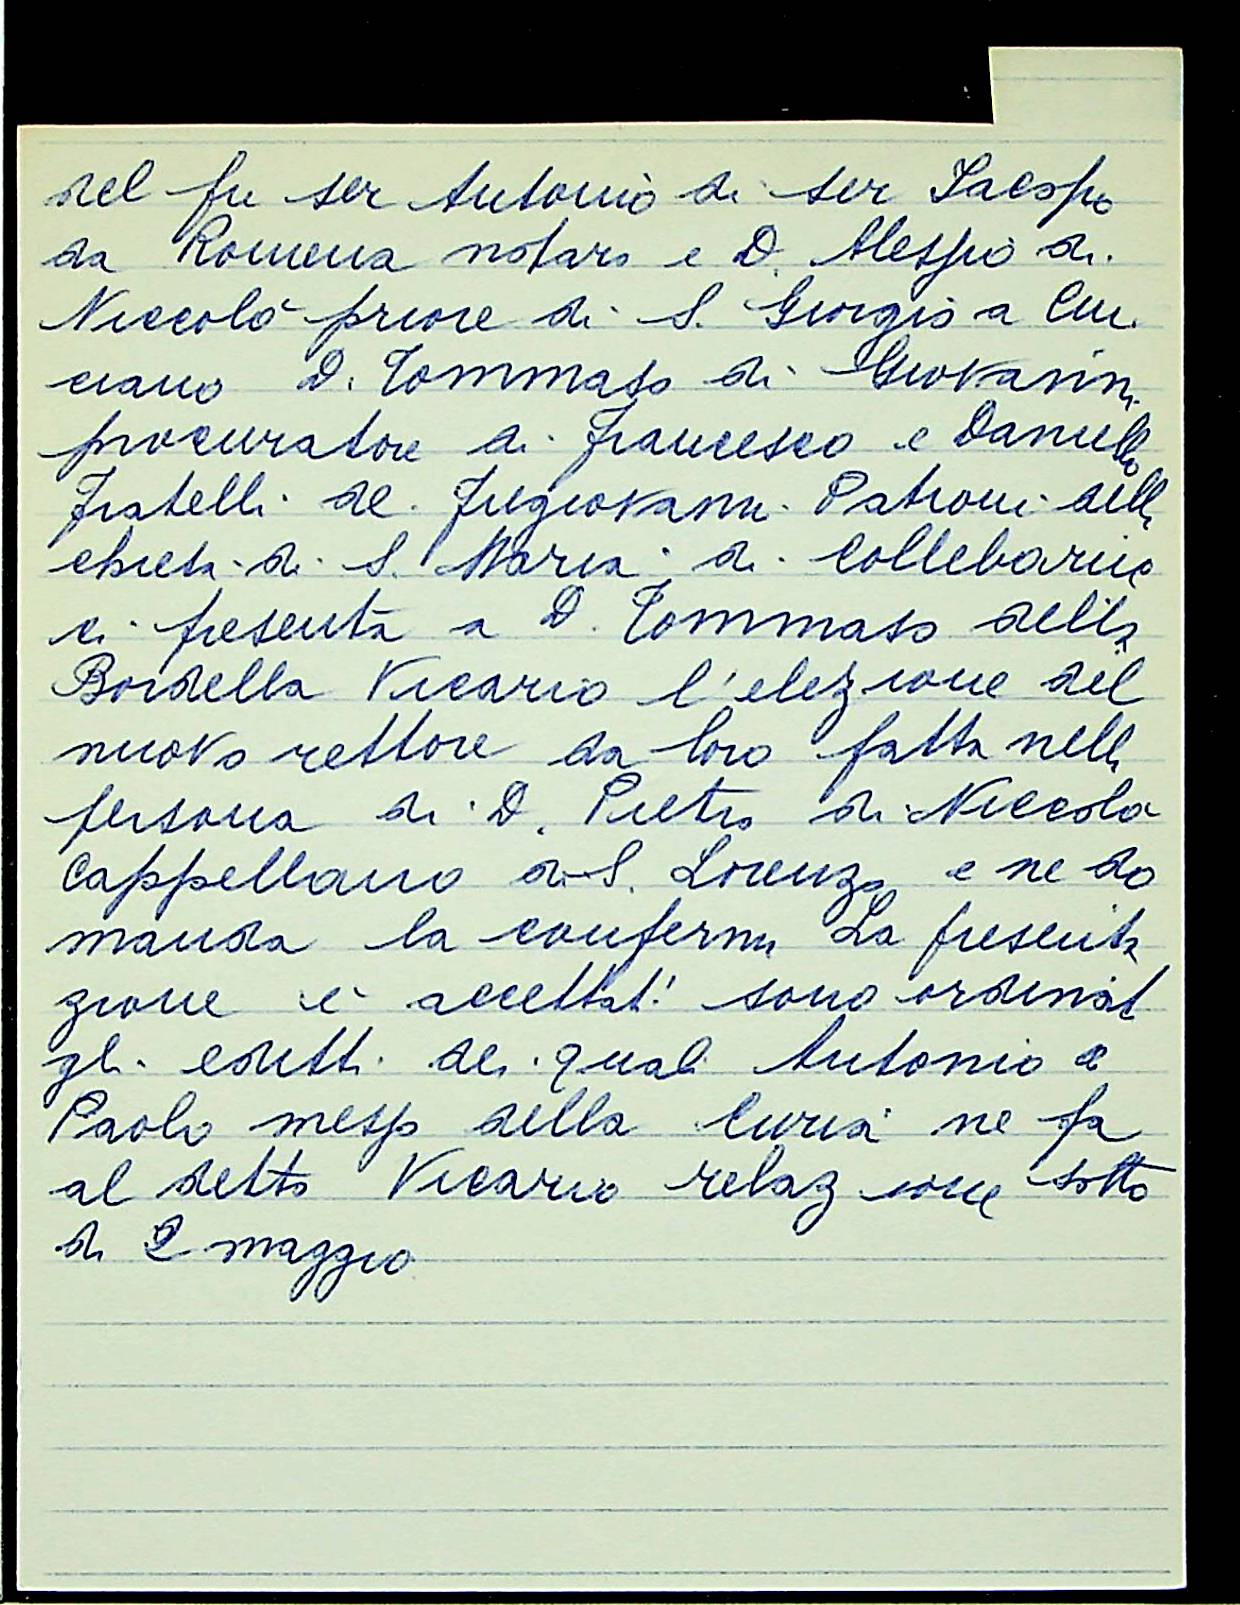 del fu ser Antonio di ser Iacopo
da Romena notaro e D. Alessio di
Niccolò priore di S. Giorgio a Cin
ciano D. Tommaso di Giovanni
procuratore di Francesco e Daniello
Fratelli de Frigiovanni Patroni della
chiesa di S. Maria di Collebarucc
ci presenta a D. Tommaso della
Bordella Vicario l'elezione del
nuovo rettore da loro fatta nella
persona di D. Pietro di Niccolò
Cappellano di S. Lorenzo e ne do
manda la conferma La presenta
zione è accettat! sono ordinat
gli editti dei quali Antonio di
Paolo messo della Curia ne fa
al detto Vicario relazione sotto
di 2 maggio